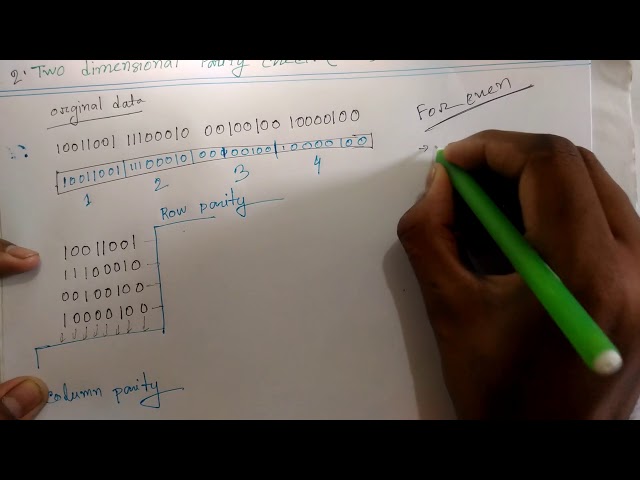 2. Two dimensional Parity Check
original data
For even
10011001 11100010 00100100 10000100
10011001 11100010 00100100 10000 00
1 2 3 4
Row parity
10011001
11100010
00100100
10000100
Column parity